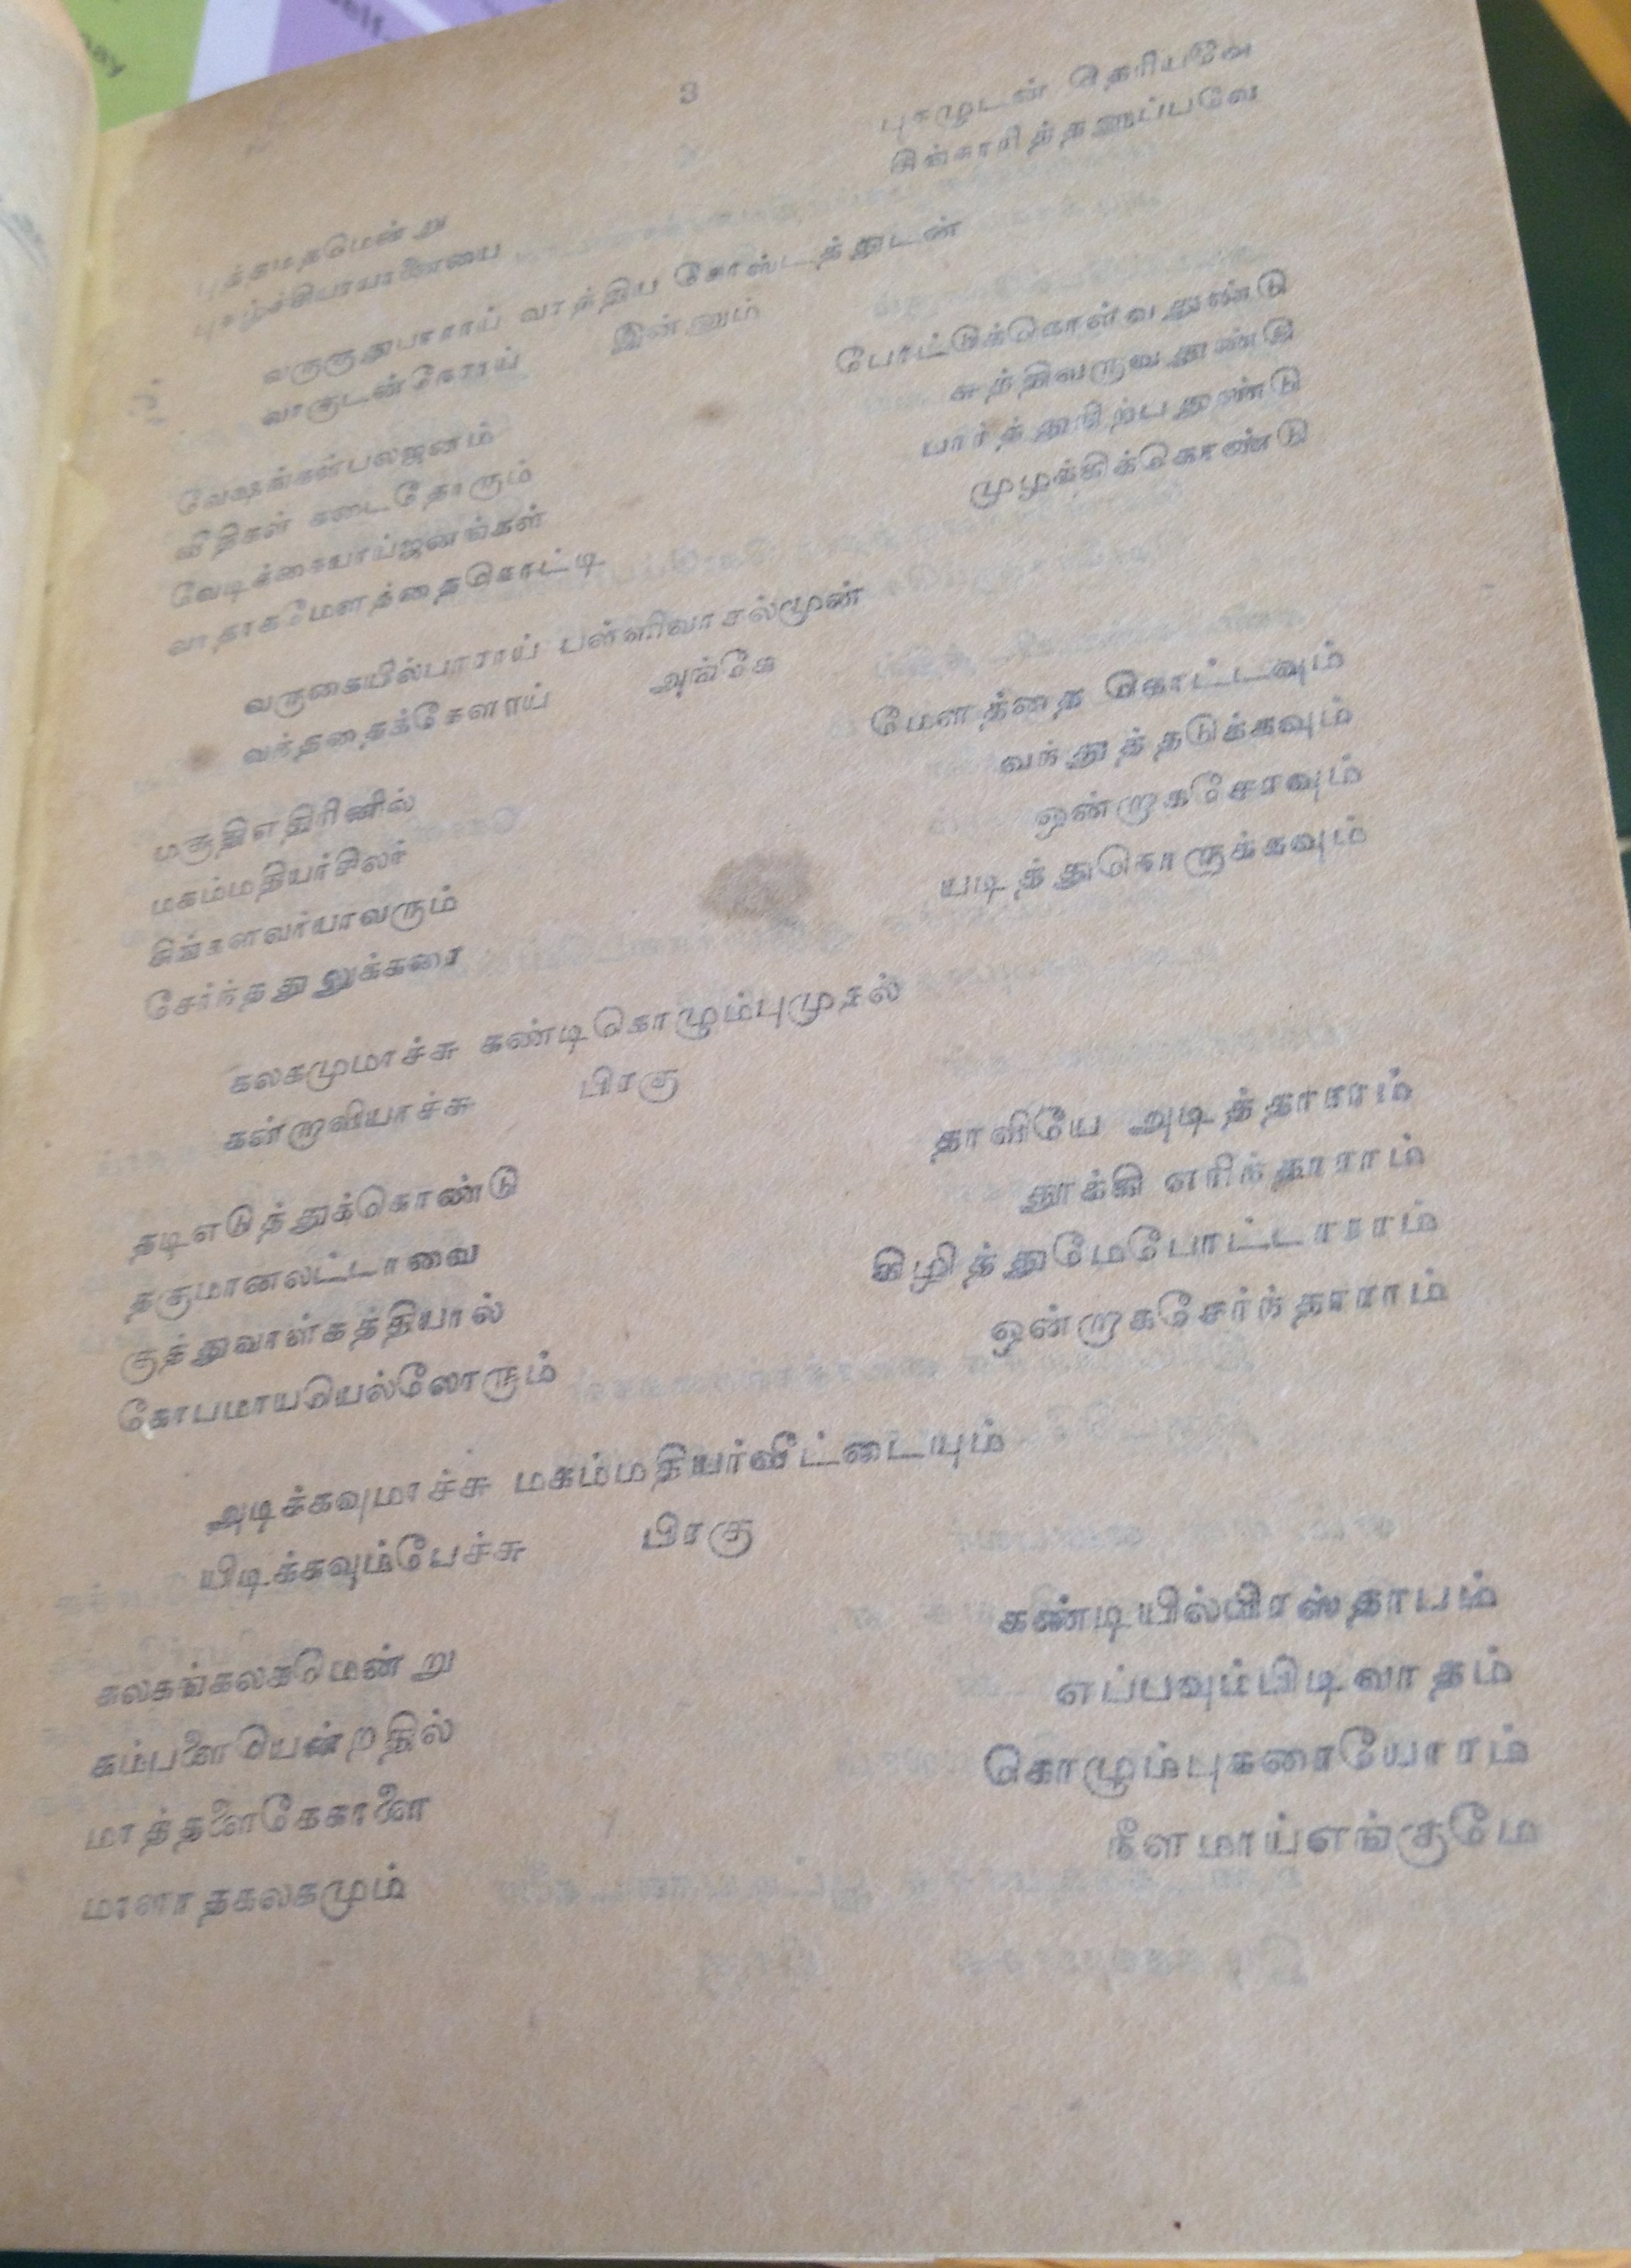 3
புத்தமதமென்று புகழுடன் தெரியவே
புகழ்ச்சியாயானையை சிங்காரித்தனுப்பவே
வருகுதுபாராய் வாத்திய கோஸ்டத்துடன்
வாகுடன்நேராய் இன்னும்
வேஷங்கள்பலஜனம் போட்டுக்கொள்வதுண்டு
வீதிகள் கடைதோரும் சுத்திவருவதுண்டு
வேடிக்கையாய்ஜனங்கள் பார்த்துநிற்பதுண்டு
வாதாகமேளத்தைகொட்டி முழக்கிக்கொண்டு
வருகையில்பாராய் பள்ளிவாசல்முன்
வந்ததைக்கேளாய் அங்கே
மகுதிஎதிரினில் மேளத்தை கொட்டவும்
மகம்மதியர்சிலர் வந்துத்தடுக்கவும்
சிங்களவர்யாவரும் ஒன்றாகசேரவும்
சேர்ந்ததுலுக்கரை யடித்துநொருக்கவும்
கலகமுமாச்சு கண்டிகொழும்புமுதல்
கன்றாவியாச்சு பிரகு
தடிஎடுத்துக்கொண்டு தாவியே அடித்தாராம்
தகுமானலட்டாவை தூக்கி எரிந்தாராம்
குத்துவாள்கத்தியால் கிழித்துமேபோட்டாராம்
கோபமாயயெல்லோரும் ஒன்றாகசேர்ந்தாராம்
அடிக்கவுமாச்சு மகம்மதியர்வீட்டையும்
யிடிக்கவும்பேச்சு பிரகு
கலகங்கலகமென்று கண்டியில்பிரஸ்தாபம்
கம்பளையென்றதில் எப்பவும்பிடிவாதம்
மாத்தளைகேகாளை கொழும்புகரையோரம்
மாளாதகலகமும் நீளமாய்எங்குமே